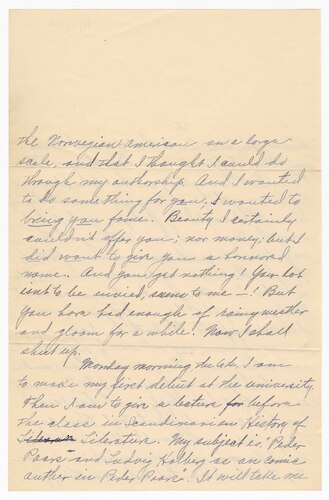 the Norwegian American on a large
scale, and that I thought I could do
through my authorship. And I wanted
to do something for you, I wanted to
bring you fame. Beauty I certainly
couldn't offer you; nor money; but I
did want to give you a honored
name. And you get nothing! Your lot
isn't to be envied, seem to me —! But
you have had enough of rainy weather
and gloom for a while. Now I shall
shut up.
Monday morning the 6th, I am
to make my first debut at the university.
Then I am to give a lecture for before
the class in Scandinavian History of
Literature. My subject is "Peder
Paars" and Ludvig Holberg as an comic
author in "Peder Paars". It will take me